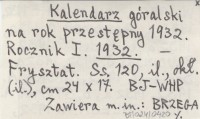 Kalendarz góralski
na rok przestępny 1932.
Rocznik I. 1932. —
Frysztat. Ss. 120, il., okł.
(il.), cm 24 x 17. BJ-WHP
Zawiera m.in.: BRZEGA